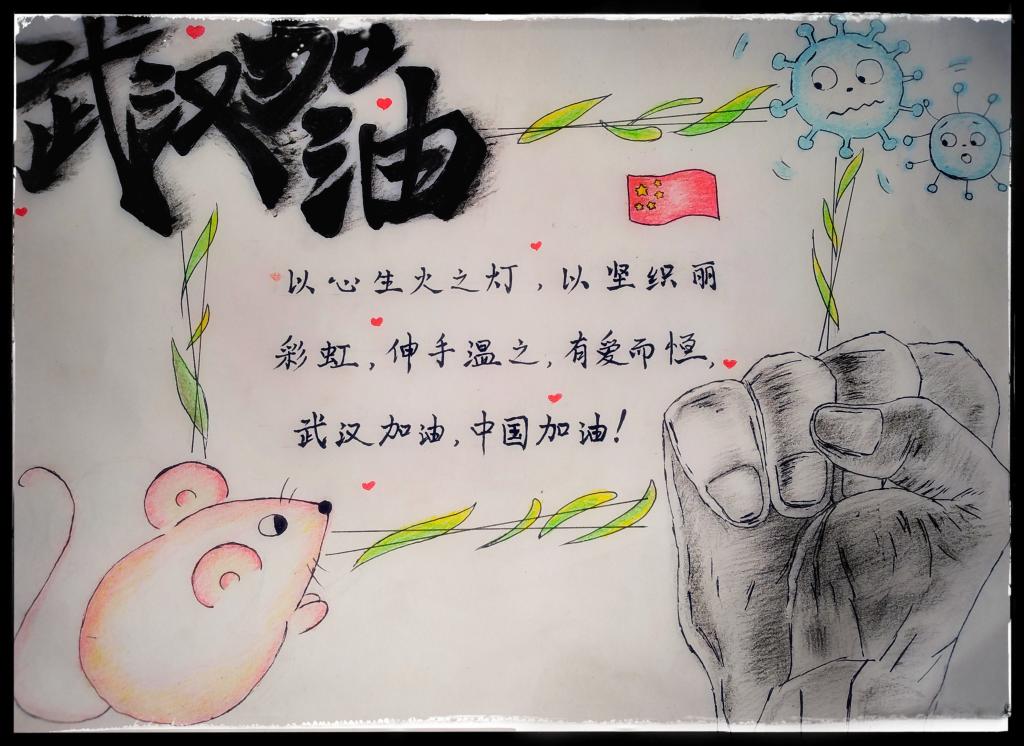 武汉加油
以心生火之灯，以坚织丽
彩虹，伸手温之，有爱而恒，
武汉加油，中国加油！